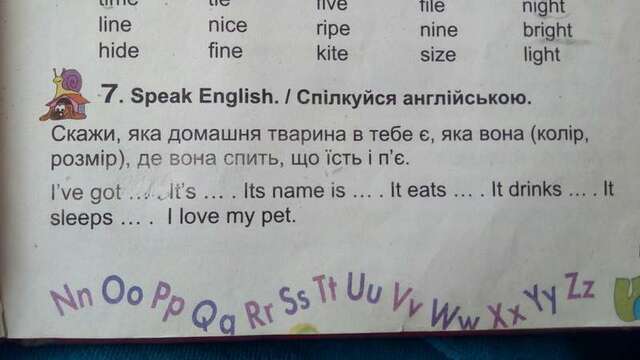 time tie five file night
line nice ripe nine bright
hide fine kite size light
7. Speak English. / Спілкуйся англійською.
Скажи, яка домашня тварина в тебе є, яка вона (колір,
розмір), де вона спить, що їсть і п’є.
I’ve got ... . It’s ... . Its name is ... . It eats ... . It drinks ... . It
sleeps ... . I love my pet.
Nn Oo Pp Qq Rr Ss Tt Uu Vv Ww Xx Yy Zz